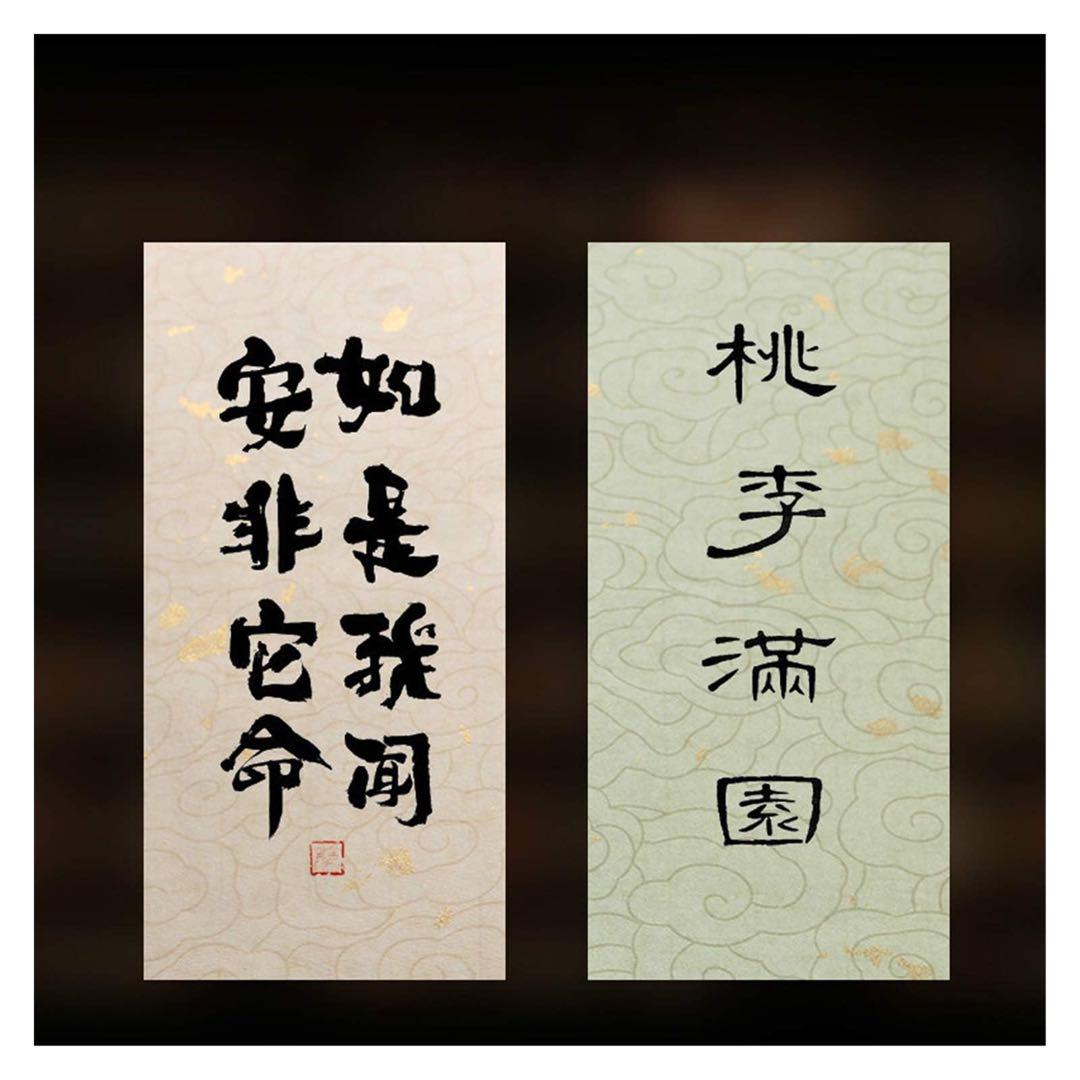 如是我闻
安非它命
桃李满园